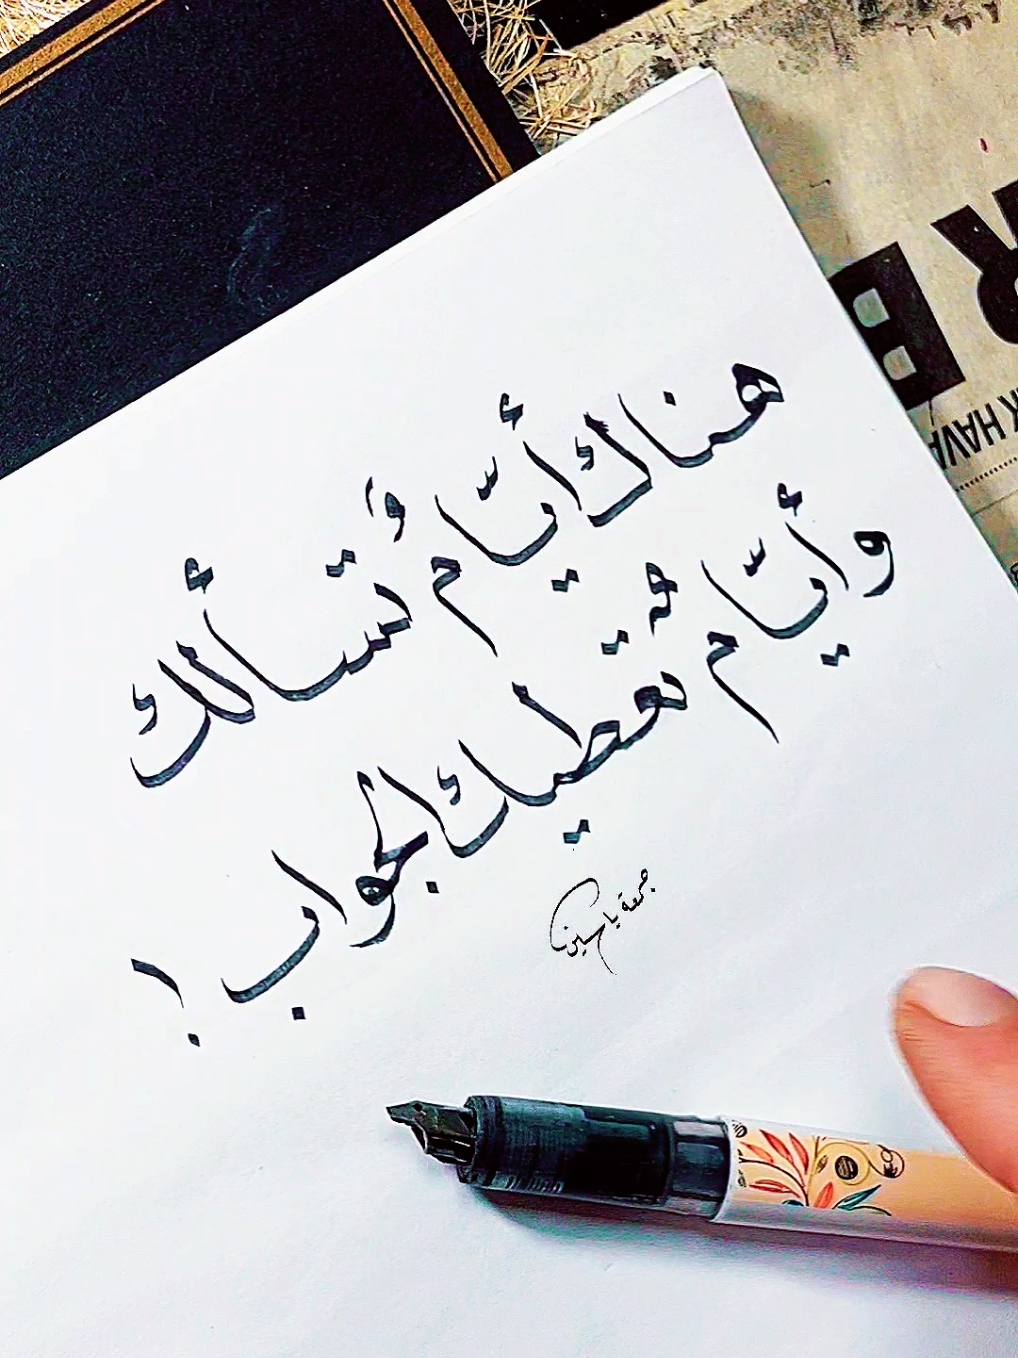 هناك أيّام تسألك
وأيّام تعطيك الجواب !
جمعة ياسين
R B
K HAVA